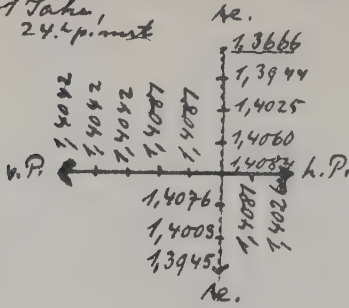 1 Jahr,
24.h p. mort
Ae.
1,3666
1,3944
1,4025
1,4060
1,4084
1,4042
1,4042
1,4042
1,4081
1,4081
v. P.
h. P.
1,4081
1,4026
1,4076
1,4009
1,3945
Ae.